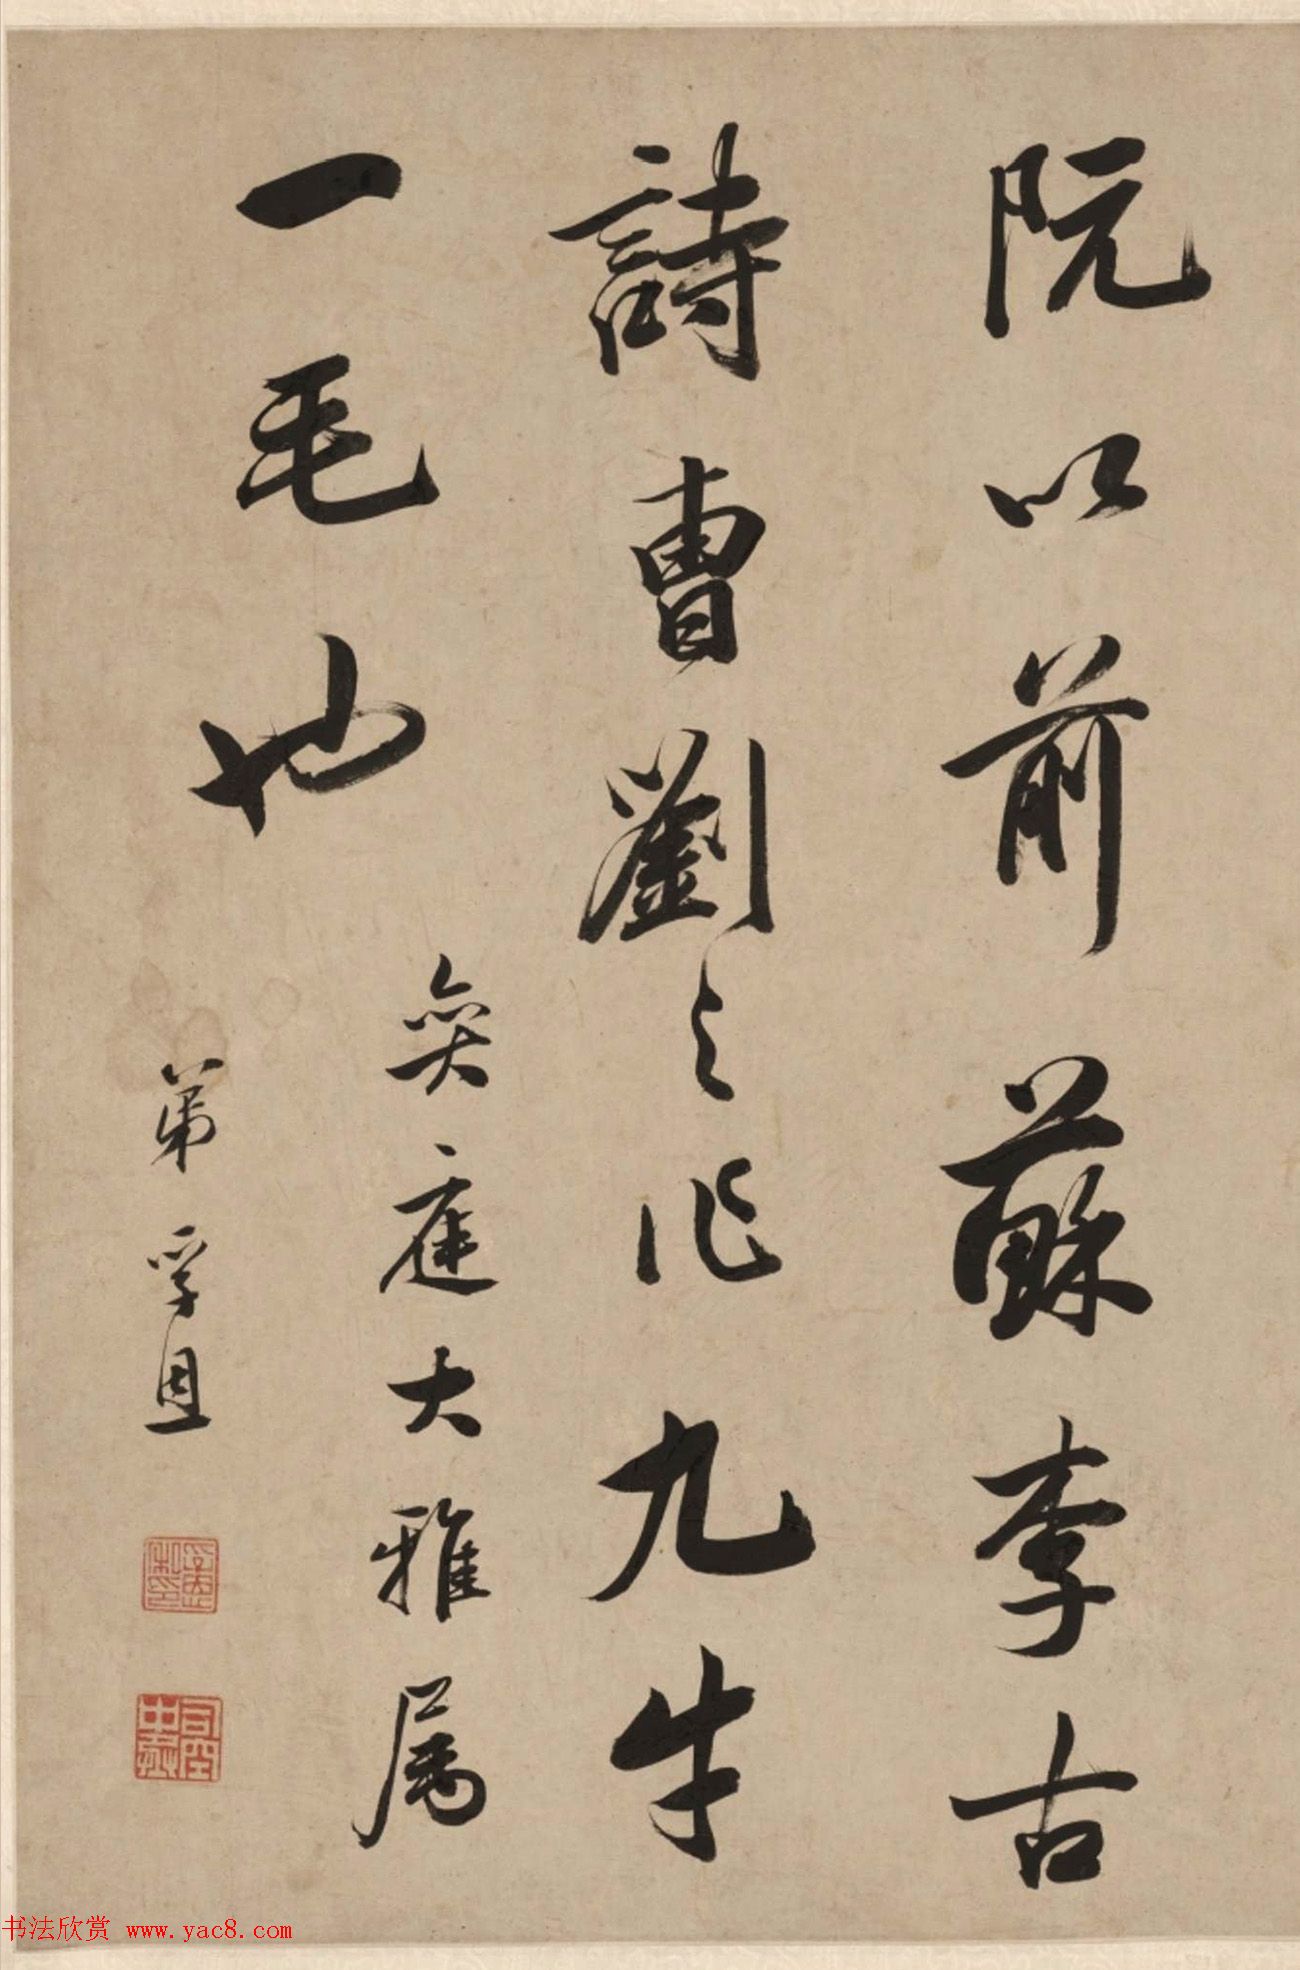 阮以前蘇李古
詩曹劉之作九牛
一毛也
奕庭大雅属
弟孚恩
司空
书法欣赏 www.yac8.com